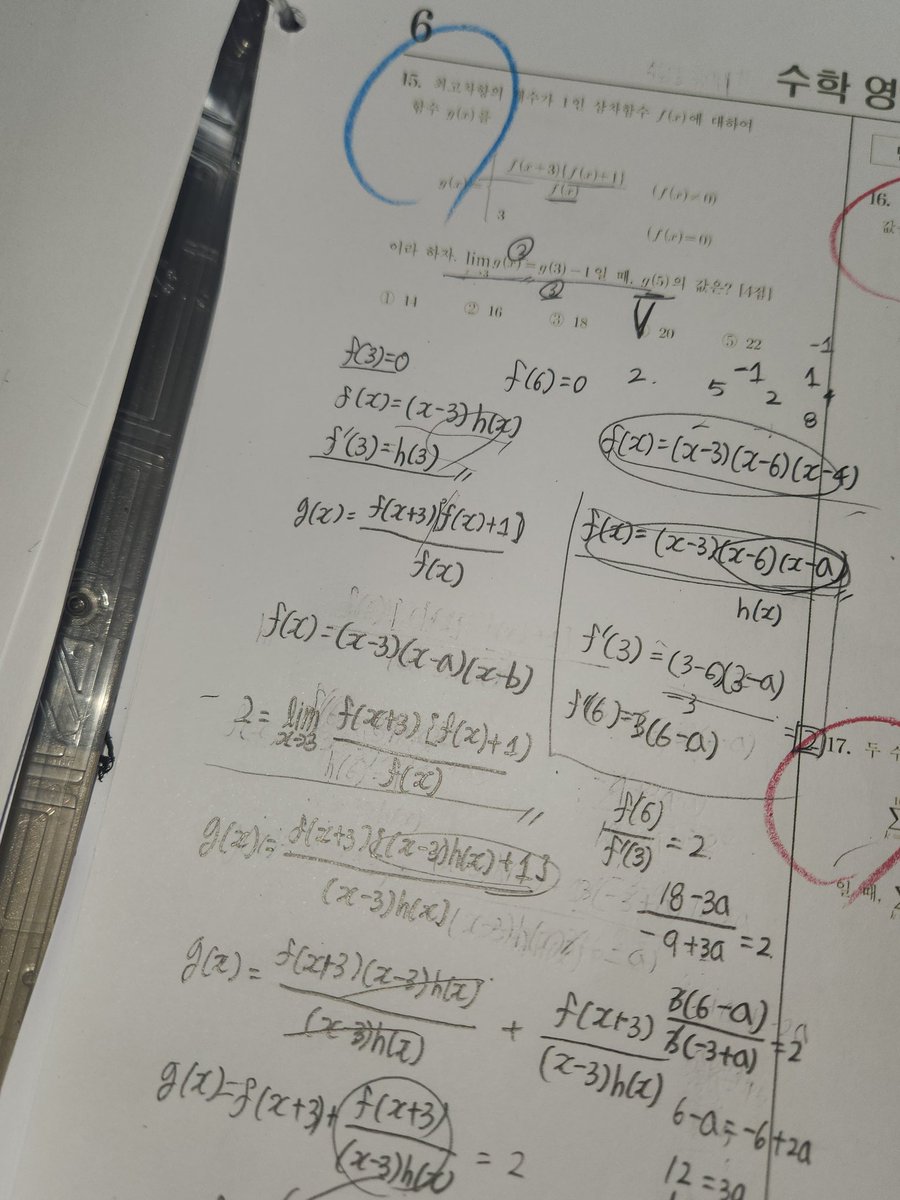 6
수학 영
15. 최고차항의 계수가 1인 삼차함수 f(x)에 대하여
함수 g(x)를
g(x)= f(x+3){f(x)+1} / f(x) (f(x)≠0)
3 (f(x)=0)
이라 하자. lim g(x)=g(3)-1일 때, g(5)의 값은? [4점]
2
3
① 14 ② 16 ③ 18 20 ⑤ 22
f(3)=0
f(x)=(x-3)h(x)
f'(3)=h(3)
g(x)= f(x+3){f(x)+1} / f(x)
f(x)=(x-3)(x-a)(x-b)
2= lim x→3 f(x+3){f(x)+1} / f(x)
g(x)= f(x+3){(x-3)h(x)+1} / (x-3)h(x)
g(x)= f(x+3)(x-3)h(x) / (x-3)h(x) + f(x+3) / (x-3)h(x)
g(x)=f(x+3)+ f(x+3) / (x-3)h(x) = 2
f(6)=0 2.
-1
5 -1 1
2
8
f(x)=(x-3)(x-6)(x-4)
f(x)=(x-3)(x-6)(x-a)
h(x)
f'(3)=(3-6)(3-a)
-3
f'(6)=3(6-a)
=2
f(6) / f'(3) =2
18-3a / -9+3a =2
3(6-a) / 3(-3+a) =2
6-a=-6+2a
12=3a
16.
값
17. 두 수
Σ
일 때, Σ